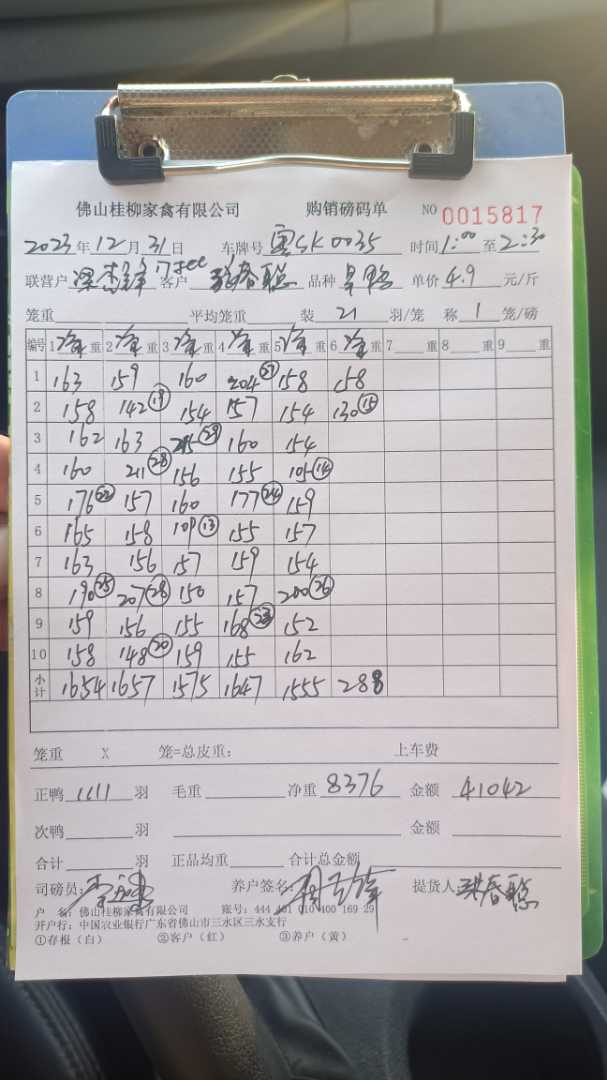 佛山桂柳家禽有限公司 购销磅码单 NO 0015817
2023年12月31日 车牌号 粤SK0035 时间1:00至2:30
联营户 客户 春聪 品种 单价4.9元/斤
笼重 平均笼重 装21羽/笼 称1笼/磅
编号 1 重 2 重 3 重 4 重 5 重 6 重 7 重 8 重 9 重
1 163 159 160 204(27) 158 158
2 158 142(19) 154 157 154 130(15)
3 162 163 215(29) 160 154
4 160 211(28) 156 155 105(14)
5 176(22) 157 160 177(24) 159
6 165 158 109(13) 155 157
7 163 156 157 159 154
8 190(25) 207(28) 150 157 200(26)
9 159 156 155 168(23) 152
10 158 148(20) 159 155 162
小计 1654 1657 1575 1647 1555 288
笼重 X 笼=总皮重: 上车费
正鸭 1111 羽 毛重 净重 8376 金额 41042
次鸭 羽 金额
合计 羽 正品均重 合计总金额
司磅员: 养户签名: 提货人 春聪
户 名:佛山桂柳家禽有限公司 账号:444 010 400 169 29
开户行:中国农业银行广东省佛山市三水区三水支行
①存根(白) ②客户(红) ③养户(黄)